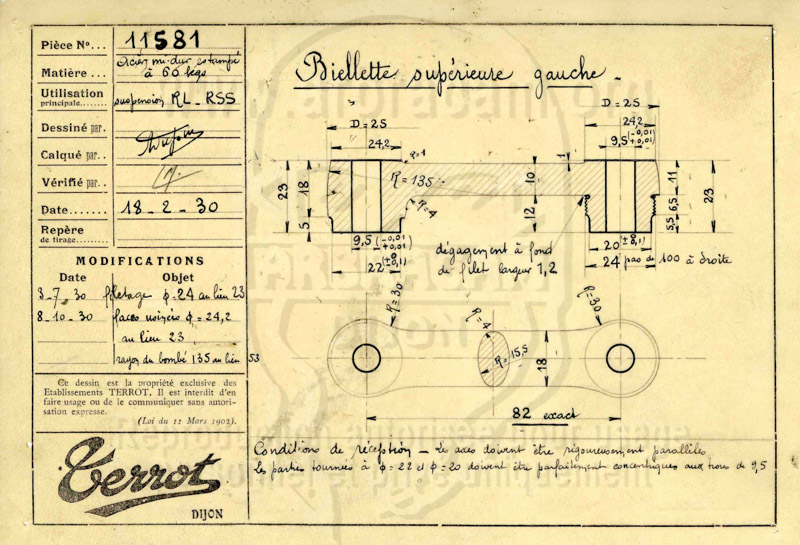 Pièce No... 11581
Matière ... Acier mi-dur estampé
à 60 kgs
Utilisation
principale........ suspension RL - RSS
Dessiné par..
Calqué par...
Vérifié par..
Date....... 18-2-30
Repère
de tirage.....
MODIFICATIONS
Date Objet
3-7-30 filetage φ=24 au lieu 23
8-10-30 faces usinées φ=24,2
au lieu 23
rayon du bombé 135 au lieu 53
Ce dessin est la propriété exclusive des
Etablissements TERROT. Il est interdit d'en
faire usage ou de le communiquer sans autori-
sation expresse.
(Loi du 11 Mars 1902).
Terrot
DIJON
Biellette supérieure gauche.
D=25
24,2
R=1
R=135
R=4
23
18
5
9,5 (-0,01 +0,01)
22 (±0,1)
10
12
1
D=25
24,2
9,5 (-0,01 +0,01)
11
6,5
5,5
23
20 (±0,1)
24 pas de 100 à droite
dégagement à fond
de filet largeur 1,2
R=30
R=4
R=15,5
18
R=30
82 exact
Conditions de réception - Les axes doivent être rigoureusement parallèles
Les parties tournées à φ=22 et φ=20 doivent être parfaitement concentriques aux trous de 9,5